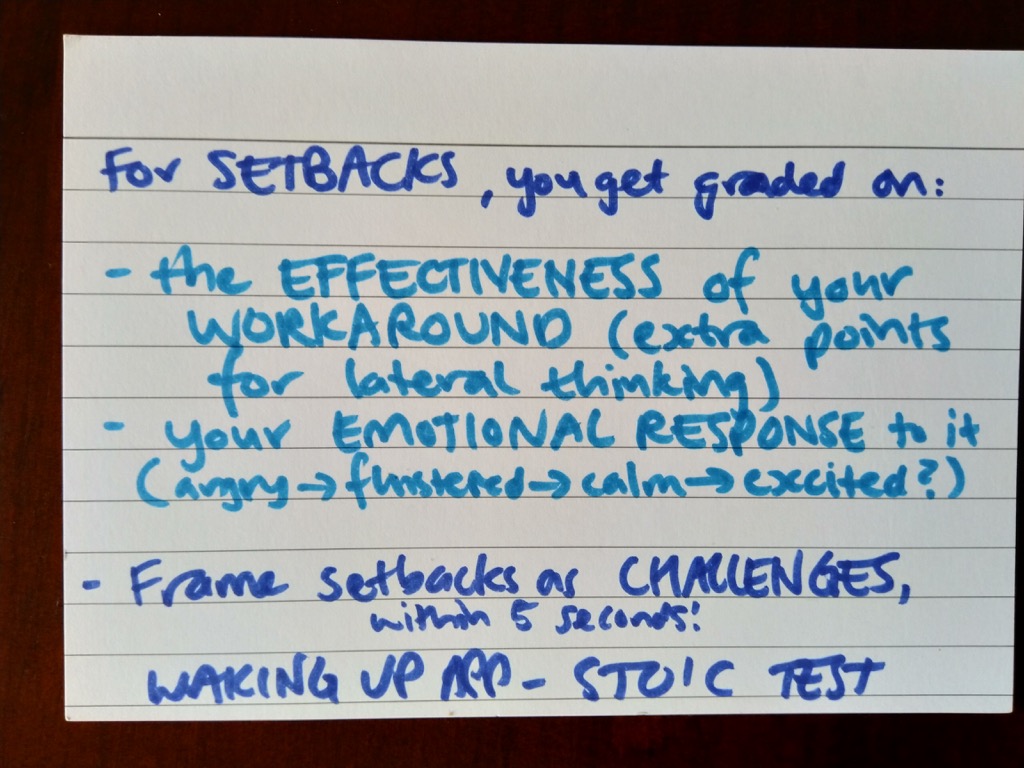 For SETBACKS, you get graded on:
- the EFFECTIVENESS of your
WORKAROUND (extra points
for lateral thinking)
- your EMOTIONAL RESPONSE to it
(angry→flustered→calm→excited?)
- Frame setbacks as CHALLENGES,
within 5 seconds!
WAKING UP APP - STOIC TEST